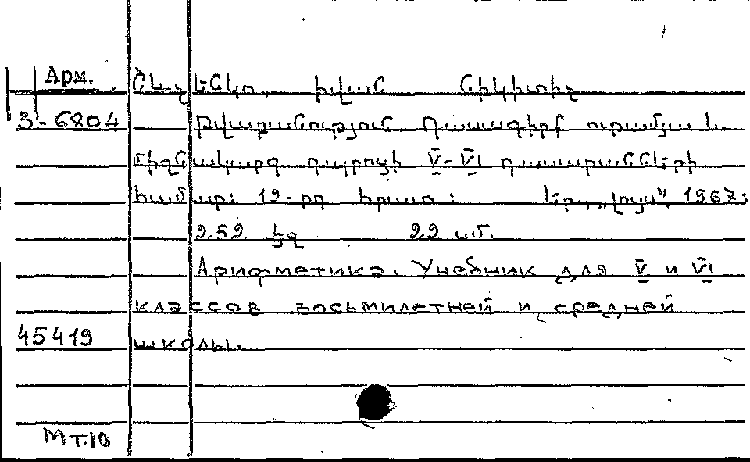 Арм. Շևչենկո, Իվան Նիկիտիչ
3-6804 Թվաբանություն Դասագիրք ութամյա և
միջնակարգ դպրոցի V-VI դասարանների
համար: 19-րդ հրատ: Եր., „Լույս", 1967:
252 էջ 22 ս.մ.
Арифметика. Учебник для V и VI
классов восьмилетней и средней
45419 школы.
МТ.10